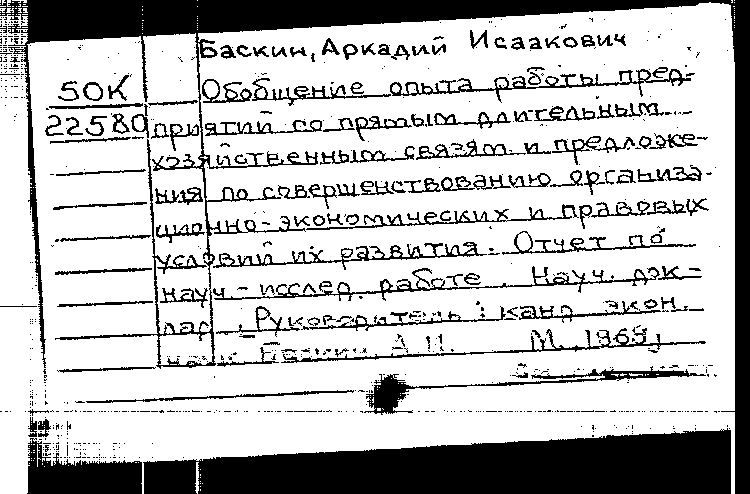 Баскин, Аркадий Исаакович
50К
22580
Обобщение опыта работы пред-
приятий со прямым длительным
хозяйственным связям и предложе-
ния по совершенствованию организа-
ционно-экономических и правовых
условий их развития. Отчет по
науч.-исслед. работе. Науч. док-
лад. Руководитель: канд. экон.
наук Баскин А.И. М., 1969,